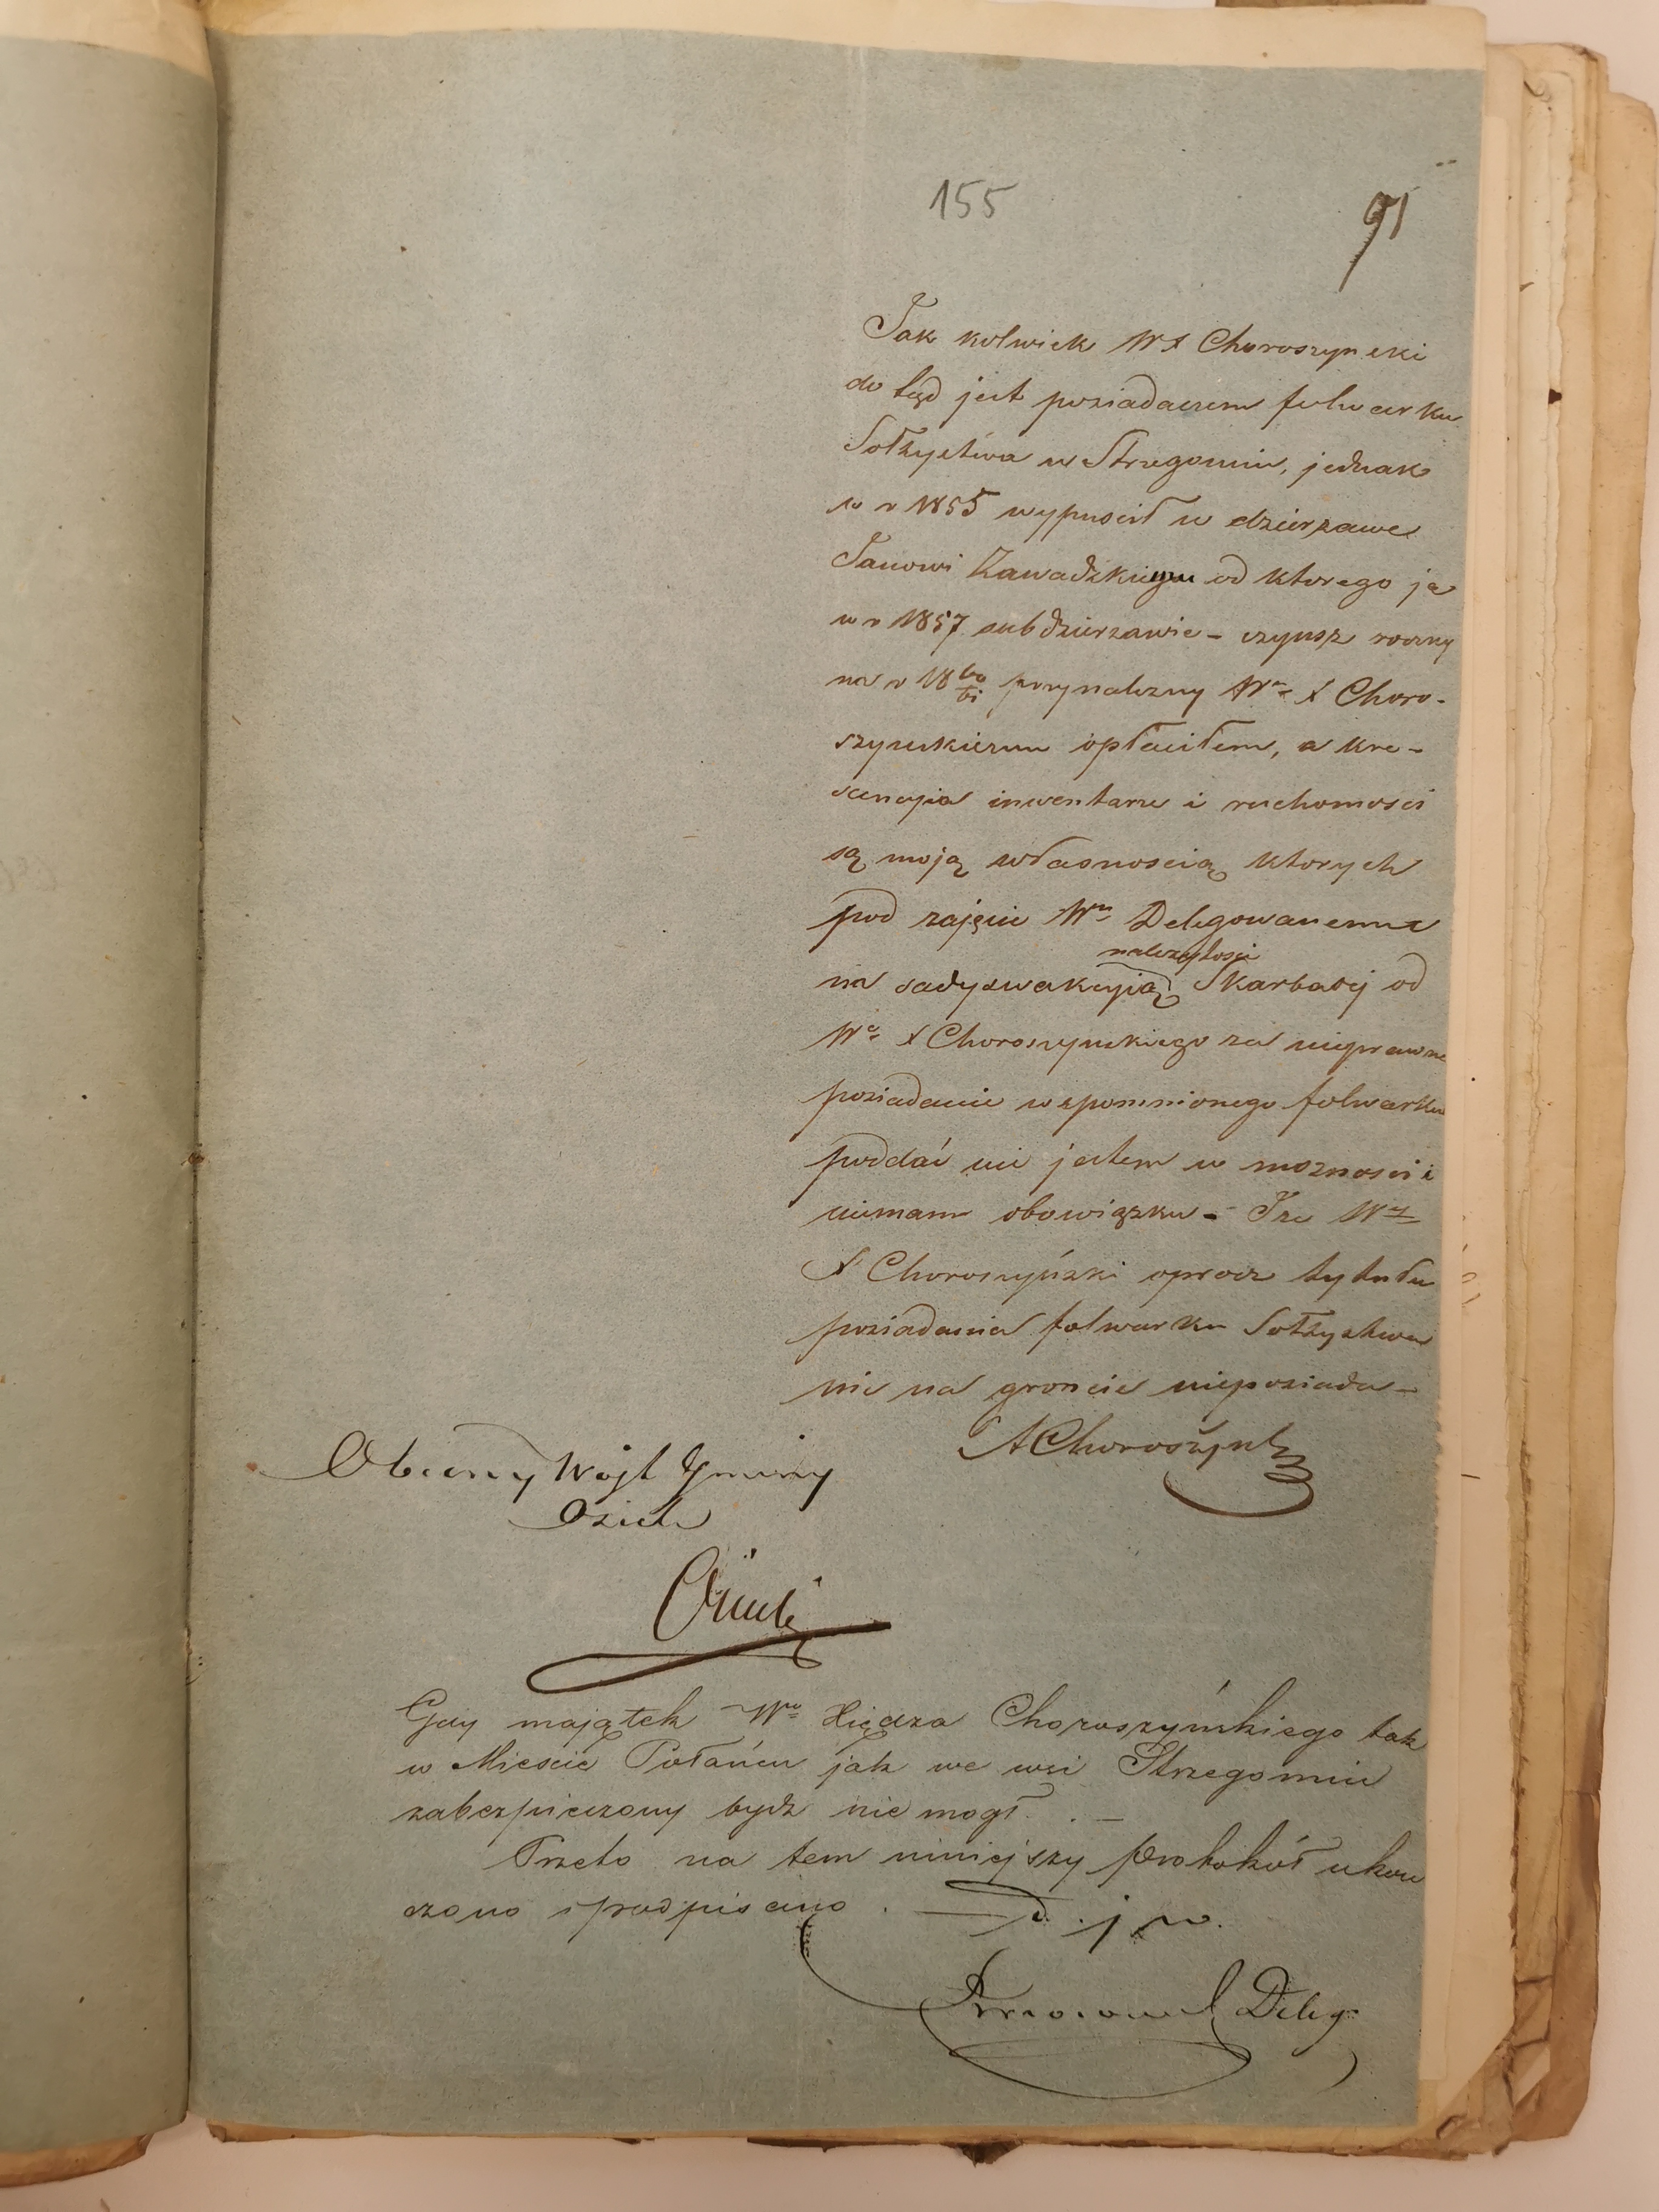 155
91
Jak kolwiek WX Choroszynski
do tąd jest posiadaczem folwarku
Sołtystwa w Strzegomiu, jednak
w r 1855 wypuscił w dzierzawe
Janowi Zawadzkiemu od ktorego ja
w r 1857 subdzierzawie – czynsz roczny
na r 18 60/61 przynalezny Wu X Choro-
szynskiemu opłaciłem, a kre-
scencyia inwentarze i ruchomosci
są moją własnoscią ktorych
pod zajęcie Wu Delegowanemu
należytosci
na sadyswakcyią Skarbowej od
Wo X Choroszynskiego za nieprawne
posiadanie wspomnionego folwarku
poddać nie jestem w moznosci i
niemam obowiązku – Ze Wy
X Choroszyński oprocz tytułu
posiadania folwarku Sołtystwa
nic na groncie nieposiada –
AChoroszyn
Obecny Wojt Gminy
Osiek
Gdy majątek Wo Xiędza Choroszyńskiego tak
w Miescie Połańcu jak we wsi Strzegomiu
zabezpieczony bydz nie mogł. . –
Przeto na tem niniejszy protokół ukon
czono i podpisano . — D. j w.
Deleg.